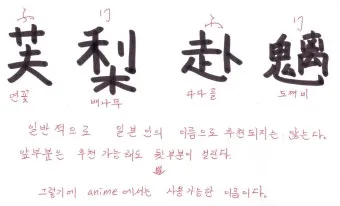 ふ り ふ り
芙 梨 赴 魑
연꽃 배나무 다다를 도깨비
일반적으로 일본인의 이름으로 추천되지는 않는다.
앞부분은 추천 가능해도 뒷부분이 걸린다.
그렇기에 anime에서는 사용가능한 이름이다.